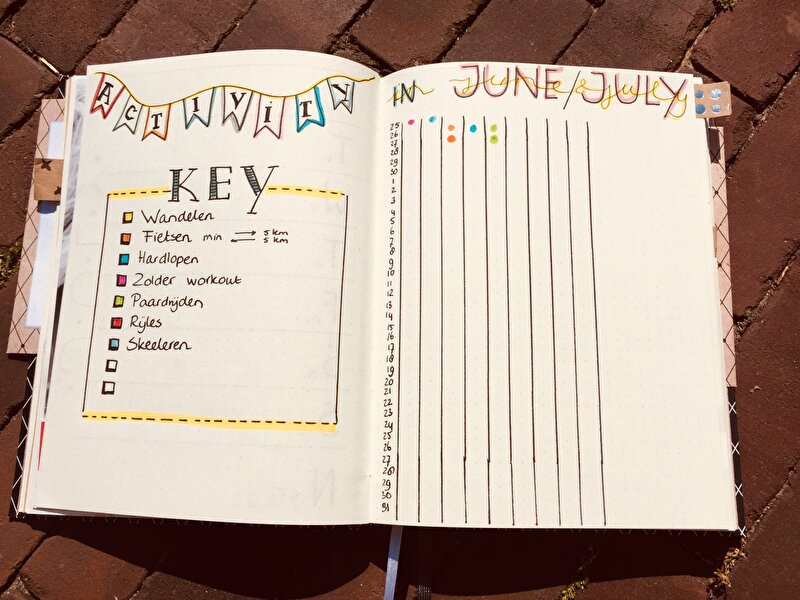 ACTIVITY
KEY
Wandelen
Fietsen min → 5 km
← 5 km
Hardlopen
Zolder workout
Paardrijden
Rijles
Skeeleren
IN JUNE/JULY
25
26
27
28
29
30
1
2
3
4
5
6
7
8
9
10
11
12
13
14
15
16
17
18
19
20
21
22
23
24
25
26
27
28
29
30
31